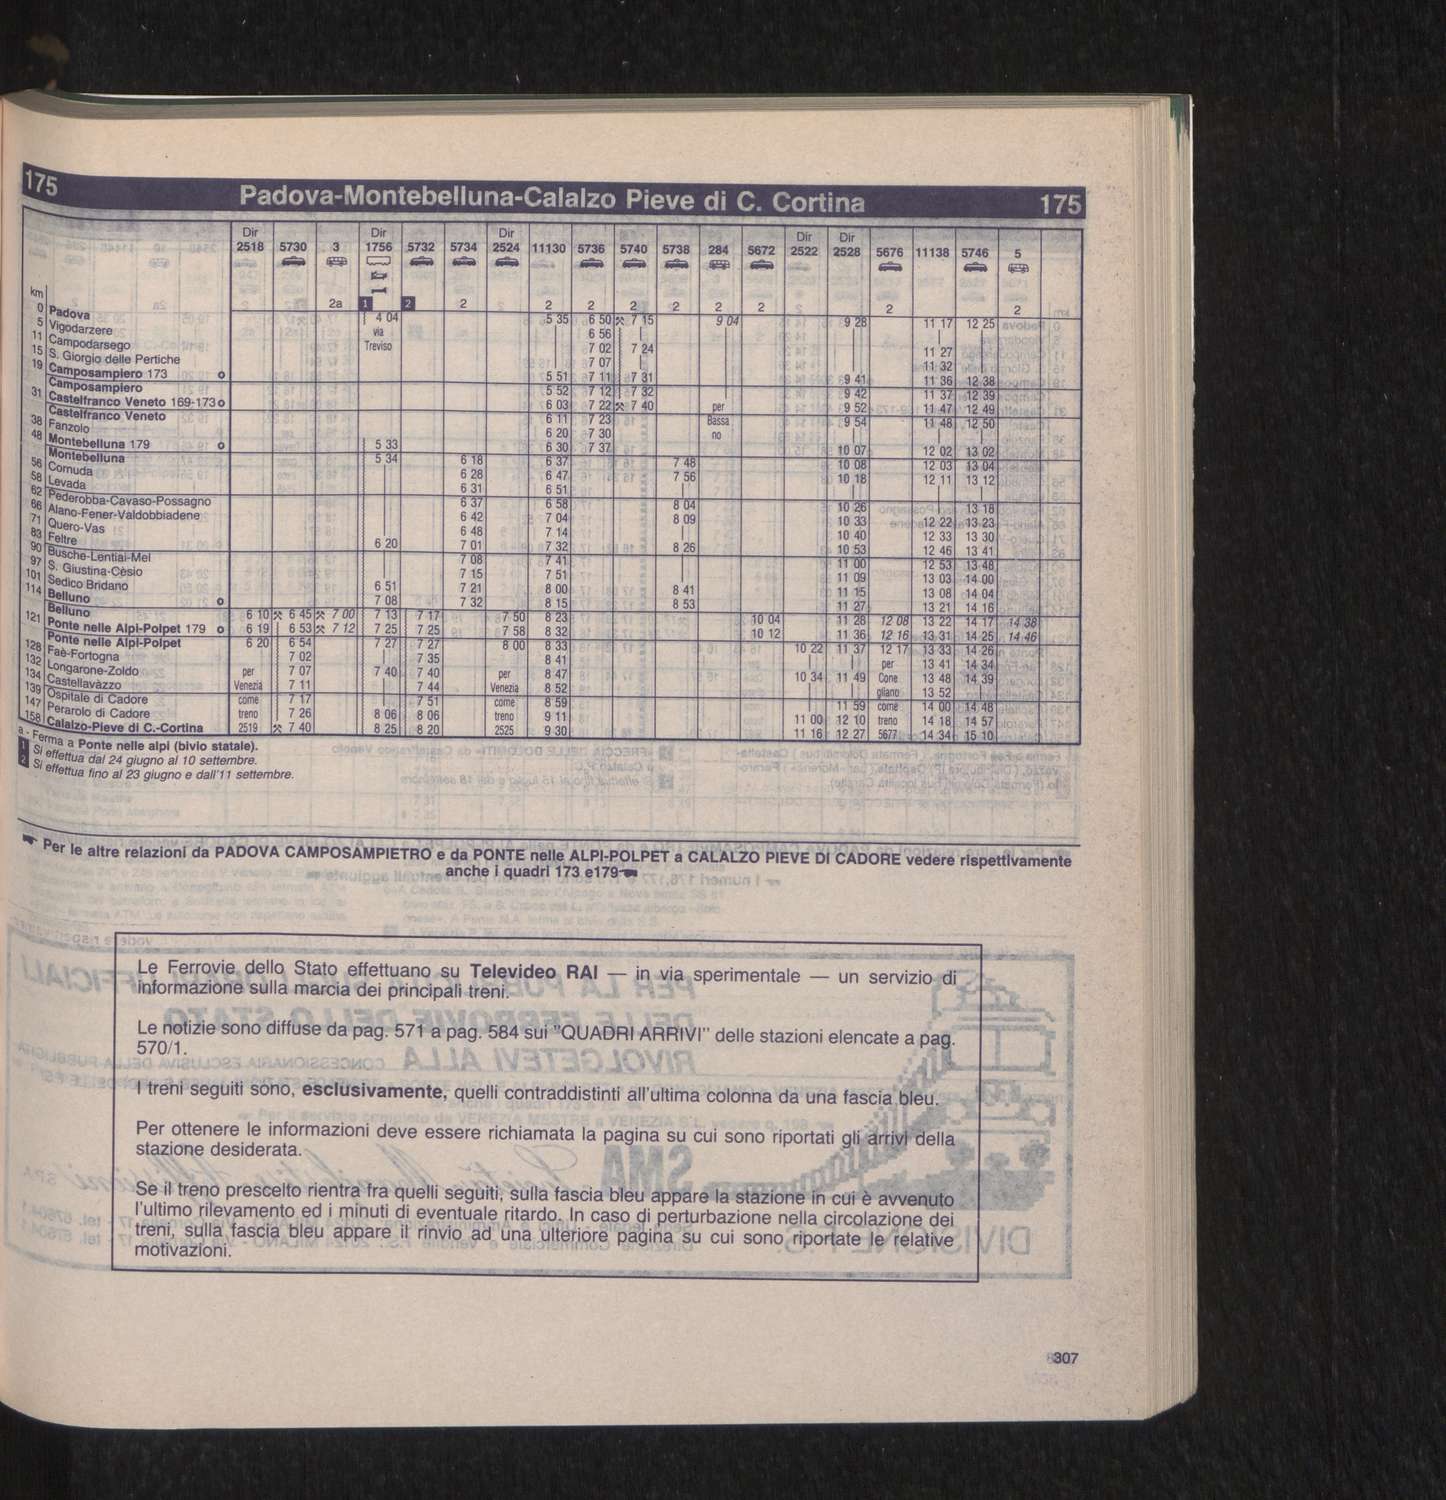 175 Padova-Montebelluna-Calalzo Pieve di C. Cortina 175
Dir Dir Dir Dir Dir
2518 5730 3 1756 5732 5734 2524 11130 5736 5740 5738 284 5672 2522 2528 5676 11138 5746 5
km 2a 1 2 2 2 2 2 2 2 2 2 2 2
0 Padova 4 04 5 35 6 50 ⚒ 7 15 9 04 9 28 11 17 12 25
5 Vigodarzere via 6 56 |
11 Campodarsego Treviso 7 02 7 24 11 27
15 S. Giorgio delle Pertiche 7 07 | 11 32
19 Camposampiero 173 o 5 51 7 11 7 31 9 41 11 36 12 38
Camposampiero 5 52 7 12 7 32 9 42 11 37 12 39
31 Castelfranco Veneto 169-173 o 6 03 7 22 ⚒ 7 40 per 9 52 11 47 12 49
Castelfranco Veneto 6 11 7 23 Bassa 9 54 11 48 12 50
38 Fanzolo 6 20 7 30 no | | |
48 Montebelluna 179 o 5 33 6 30 7 37 10 07 12 02 13 02
Montebelluna 5 34 6 18 6 37 7 48 10 08 12 03 13 04
56 Cornuda 6 28 6 47 7 56 10 18 12 11 13 12
58 Levada 6 31 6 51 | | | |
62 Pederobba-Cavaso-Possagno 6 37 6 58 8 04 10 26 | 13 18
66 Alano-Fener-Valdobbiadene 6 42 7 04 8 09 10 33 12 22 13 23
71 Quero-Vas 6 48 7 14 | 10 40 12 33 13 30
83 Feltre 6 20 7 01 7 32 8 26 10 53 12 46 13 41
90 Busche-Lentiai-Mel 7 08 7 41 | 11 00 12 53 13 48
97 S. Giustina-Cèsio 7 15 7 51 | 11 09 13 03 14 00
101 Sedico Bridano 6 51 7 21 8 00 8 41 11 15 13 08 14 04
114 Belluno o 7 08 7 32 8 15 8 53 11 27 13 21 14 16
Belluno 6 10 ⚒ 6 45 ⚒ 7 00 7 13 7 17 7 50 8 23 10 04 11 28 12 08 13 22 14 17 14 38
121 Ponte nelle Alpi-Polpet 179 o 6 19 6 53 ⚒ 7 12 7 25 7 25 7 58 8 32 10 12 11 36 12 16 13 31 14 25 14 46
Ponte nelle Alpi-Polpet 6 20 6 54 7 27 7 27 8 00 8 33 10 22 11 37 12 17 13 33 14 26
128 Faè-Fortogna 7 02 | 7 35 8 41 | | per 13 41 14 34
132 Longarone-Zoldo per 7 07 7 40 7 40 per 8 47 10 34 11 49 Cone 13 48 14 39
134 Castellavàzzo Venezia 7 11 | 7 44 Venezia 8 52 | | gliano 13 52 |
139 Ospitale di Cadore come 7 17 | 7 51 come 8 59 | 11 59 come 14 00 14 48
147 Perarolo di Cadore treno 7 26 8 06 8 06 treno 9 11 11 00 12 10 treno 14 18 14 57
158 Calalzo-Pieve di C.-Cortina 2519 ⚒ 7 40 8 25 8 20 2525 9 30 11 16 12 27 5677 14 34 15 10
a - Ferma a Ponte nelle alpi (bivio statale).
1 Si effettua dal 24 giugno al 10 settembre.
2 Si effettua fino al 23 giugno e dall'11 settembre.
☛ Per le altre relazioni da PADOVA CAMPOSAMPIETRO e da PONTE nelle ALPI-POLPET a CALALZO PIEVE DI CADORE vedere rispettivamente
anche i quadri 173 e179
Le Ferrovie dello Stato effettuano su Televideo RAI — in via sperimentale — un servizio di
informazione sulla marcia dei principali treni.
Le notizie sono diffuse da pag. 571 a pag. 584 sui "QUADRI ARRIVI" delle stazioni elencate a pag.
570/1.
I treni seguiti sono, esclusivamente, quelli contraddistinti all'ultima colonna da una fascia bleu.
Per ottenere le informazioni deve essere richiamata la pagina su cui sono riportati gli arrivi della
stazione desiderata.
Se il treno prescelto rientra fra quelli seguiti, sulla fascia bleu appare la stazione in cui è avvenuto
l'ultimo rilevamento ed i minuti di eventuale ritardo. In caso di perturbazione nella circolazione dei
treni, sulla fascia bleu appare il rinvio ad una ulteriore pagina su cui sono riportate le relative
motivazioni.
307